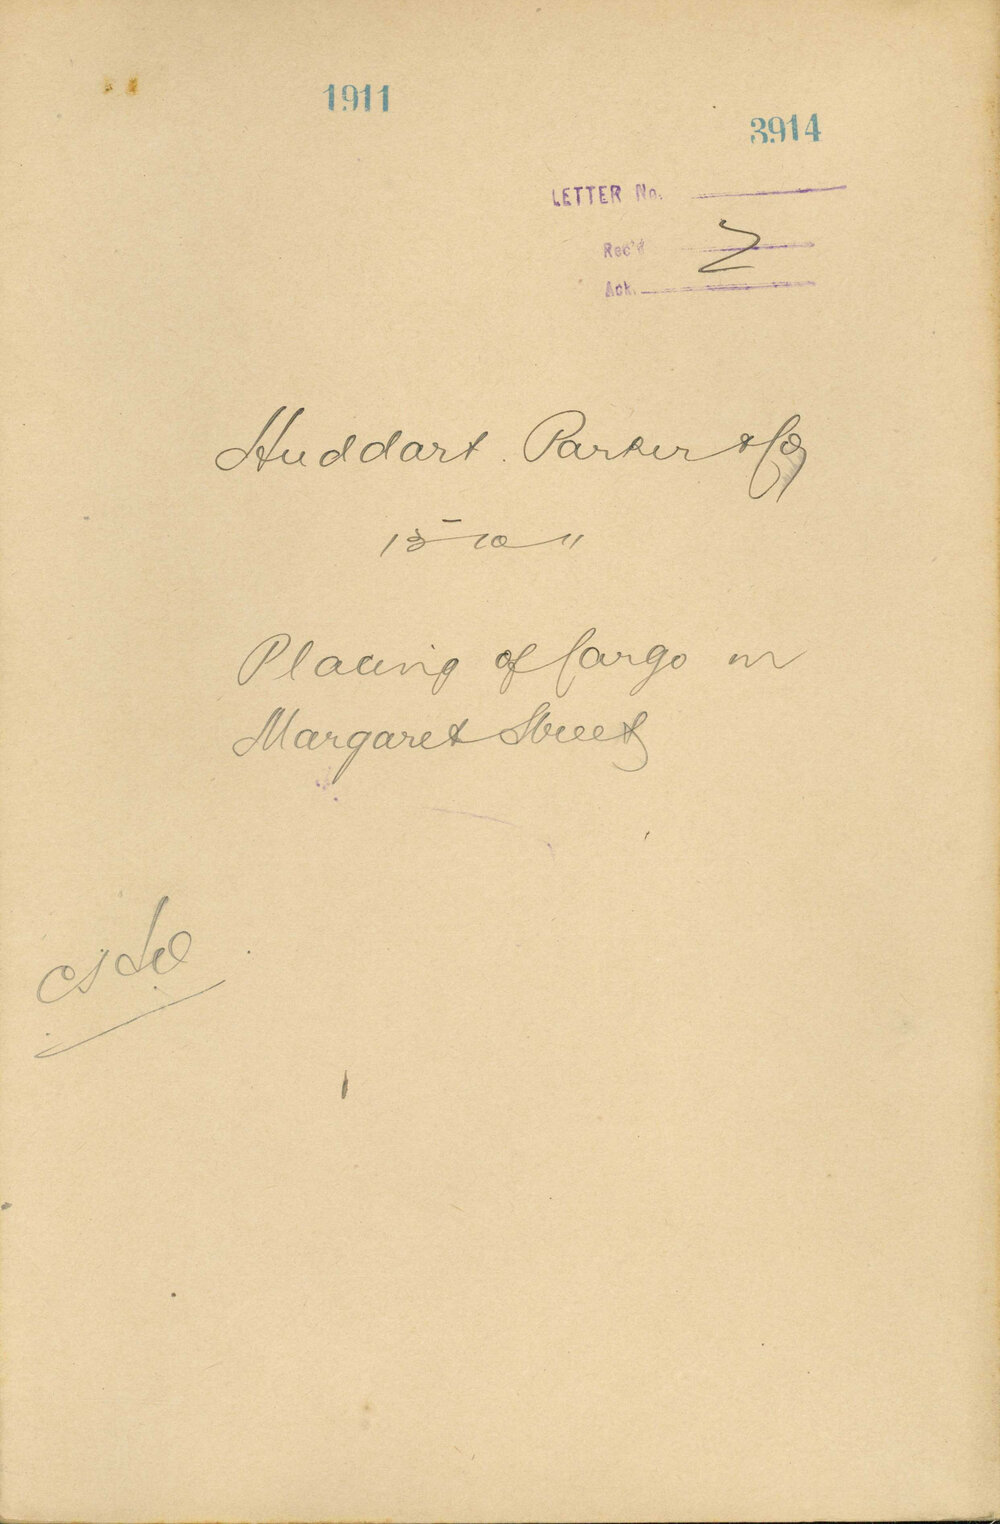 1911
3914
LETTER No.
Rec'd
Ack.
Huddart Parker & Co
15 10 11
Placing of Cargo in
Margaret Street